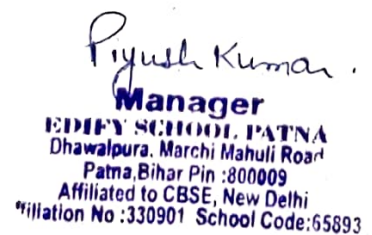 Piyush Kumar.
Manager
EDIFY SCHOOL, PATNA
Dhawalpura. Marchi Mahuli Road
Patna,Bihar Pin :800009
Affiliated to CBSE, New Delhi
filiation No :330901 School Code:65893